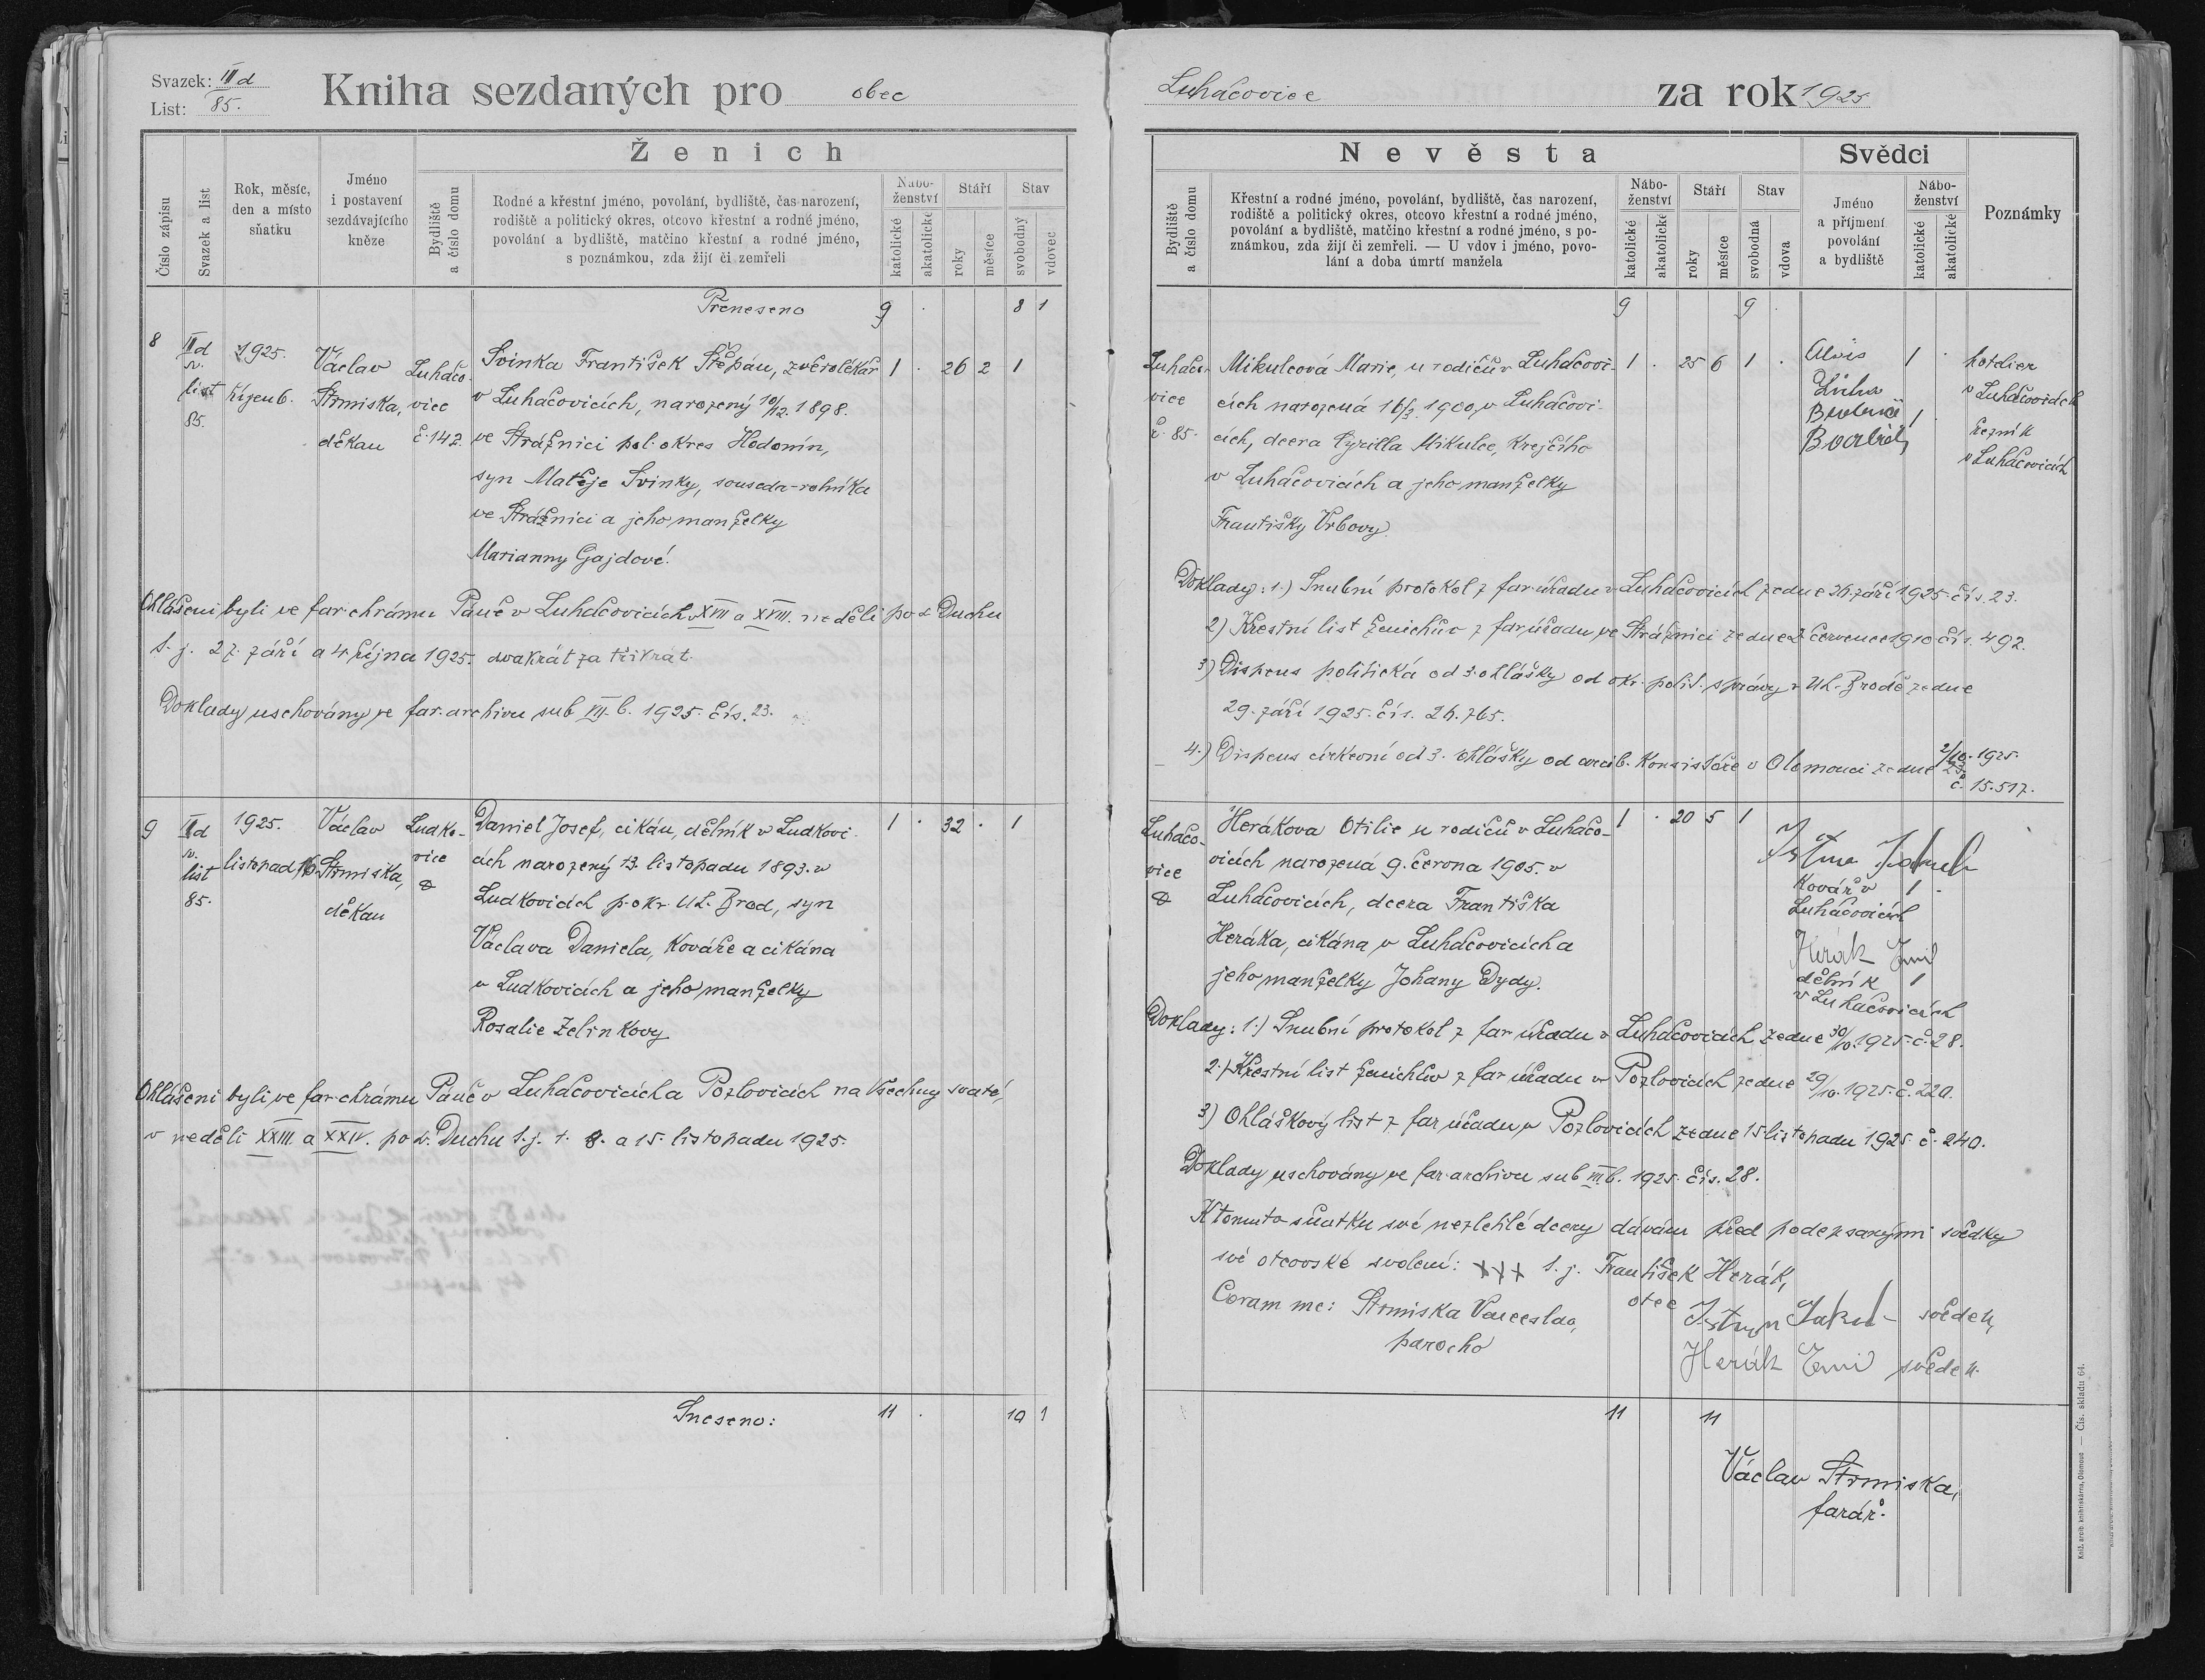 Svazek: III d
List: 85.
Kniha sezdaných pro obec
Číslo zápisu
Svazek a list
Rok, měsíc,
den a místo
sňatku
Jméno
i postavení
sezdávajícího
kněze
Ženich
Bydliště
a číslo domu
Rodné a křestní jméno, povolání, bydliště, čas narození,
rodiště a politický okres, otcovo křestní a rodné jméno,
povolání a bydliště, matčino křestní a rodné jméno,
s poznámkou, zda žijí či zemřeli
Nábo-
ženství
katolické
akatolické
Stáří
roky
měsíce
Stav
svobodný
vdovec
Přeneseno 9 . 8 1
8
III d
sv.
list
85.
1925.
října 6.
Václav
Strmiska,
děkan
Luhačo-
vice
č. 142.
Svinka František Štěpán, zvěrolékař
v Luhačovicích, narozený 10/12. 1898.
ve Strážnici pol. okres Hodonín,
syn Matěje Svinky, souseda-rolníka
ve Strážnici a jeho manželky
Marianny Gajdové.
1 . 26 2 1
Ohlášeni byli ve far. chrámu Páně v Luhačovicích v XVII a XVIII. neděli po s. Duchu
t. j. 27. září a 4 října 1925. dvakrát za třikrát.
Doklady uschovány ve far. archivu sub VII. b. 1925. čís. 23.
9
III d
sv.
list
85.
1925.
listopad 16
Václav
Strmiska,
děkan
Ludko-
vice
Daniel Josef, cikán, dělník v Ludkovi-
cích narozený 13. listopadu 1893. v
Ludkovicích p. okr. Uh. Brod, syn
Václava Daniela, kováře a cikána
v Ludkovicích a jeho manželky
Rosalie Zelinkovy
1 . 32 . 1
Ohlášeni byli ve far. chrámu Páně v Luhačovicích a Pozlovicích na Všechny svaté,
v neděli XXIII. a XXIV. po s. Duchu t. j. 1. 8. a 15. listopadu 1925.
Sneseno: 11 . 10 1
Luhačovice za rok 1925
Nevěsta
Bydliště
a číslo domu
Křestní a rodné jméno, povolání, bydliště, čas narození,
rodiště a politický okres, otcovo křestní a rodné jméno,
povolání a bydliště, matčino křestní a rodné jméno, s po-
známkou, zda žijí či zemřeli. — U vdov i jméno, povo-
lání a doba úmrtí manžela
Nábo-
ženství
katolické
akatolické
Stáří
roky
měsíce
Stav
svobodná
vdova
Svědci
Jméno
a příjmení
povolání
a bydliště
Nábo-
ženství
katolické
akatolické
Poznámky
9 9 .
Luhačo-
vice
č. 85.
Mikulcová Marie, u rodičů v Luhačovi-
cích narozená 16/3. 1900, v Luhačovi-
cích, dcera Cyrilla Mikulce, krejčího
v Luhačovicích a jeho manželky
Františky Vrbovy.
1 . 25 6 1 .
Alois
1 .
hotelier
v Luhačovicích
1
řezník
v Luhačovicích
Doklady: 1.) Snubní protokol z far. úřadu v Luhačovicích ze dne 26. září 1925. čís. 23.
2) Křestní list ženichův z far. úřadu ve Strážnici ze dne 2 července 1910 čís. 492.
3) Dispens politická od 3. ohlášky od okr. polit. správy v Uh. Brodě ze dne
29. září 1925. čís. 26.765.
4.) Dispens církevní od 3. ohlášky od arcib. konsistoře v Olomouci ze dne 2/10. 1925.
č. 15.517.
Luhačo-
vice
Herákova Otilie u rodičů v Luhačo-
vicích narozená 9. června 1905. v
Luhačovicích, dcera Františka
Heráka, cikána v Luhačovicích a
jeho manželky Johany Dydy.
1 . 20 5 1
kovář v
Luhačovicích
1 .
Herák Emil
dělník
v Luhačovicích
1
Doklady: 1.) Snubní protokol z far. úřadu v Luhačovicích ze dne 30/10. 1925. č. 28.
2.) Křestní list ženichův z far. úřadu v Pozlovicích ze dne 29/10. 1925. č. 220.
3) Ohláškový list z far. úřadu v Pozlovicích ze dne 15 listopadu 1925. č. 240.
Doklady uschovány ve far. archivu sub VII. b. 1925. čís. 28.
K tomuto sňatku své nezletilé dcery dávám před podepsanými svědky
své otcovské svolení: XXX t. j. František Herák,
otec
Coram me: Strmiska Venceslao,
parocho
svědek,
Herák Emil svědek.
11 11
Václav Strmiska,
farář.
Kniž. arcib. knihtiskárna, Olomouc — Čís. skladu 64.